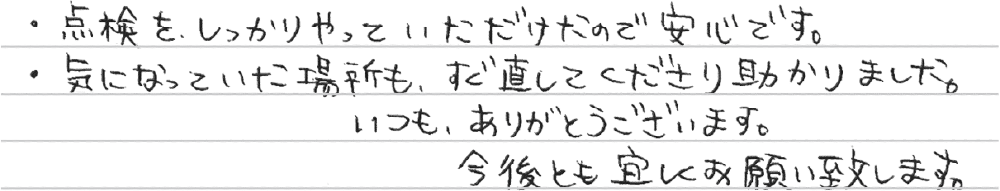 ・点検を、しっかりやっていただけたので安心です。
・気になっていた場所も、すぐ直してくださり助かりました。
いつも、ありがとうございます。
今後とも宜しくお願い致します。